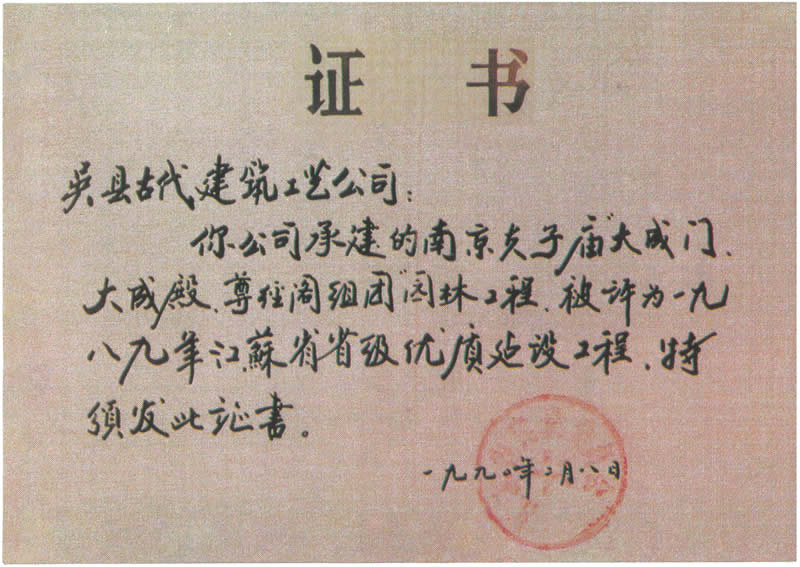 证书
吴县古代建筑工艺公司：
你公司承建的南京夫子庙"大成门、
大成殿、尊经阁组团"园林工程，被评为一九
八九年江蘇省省级优质建设工程，特
頒发此证書。
一九九〇年二月八日